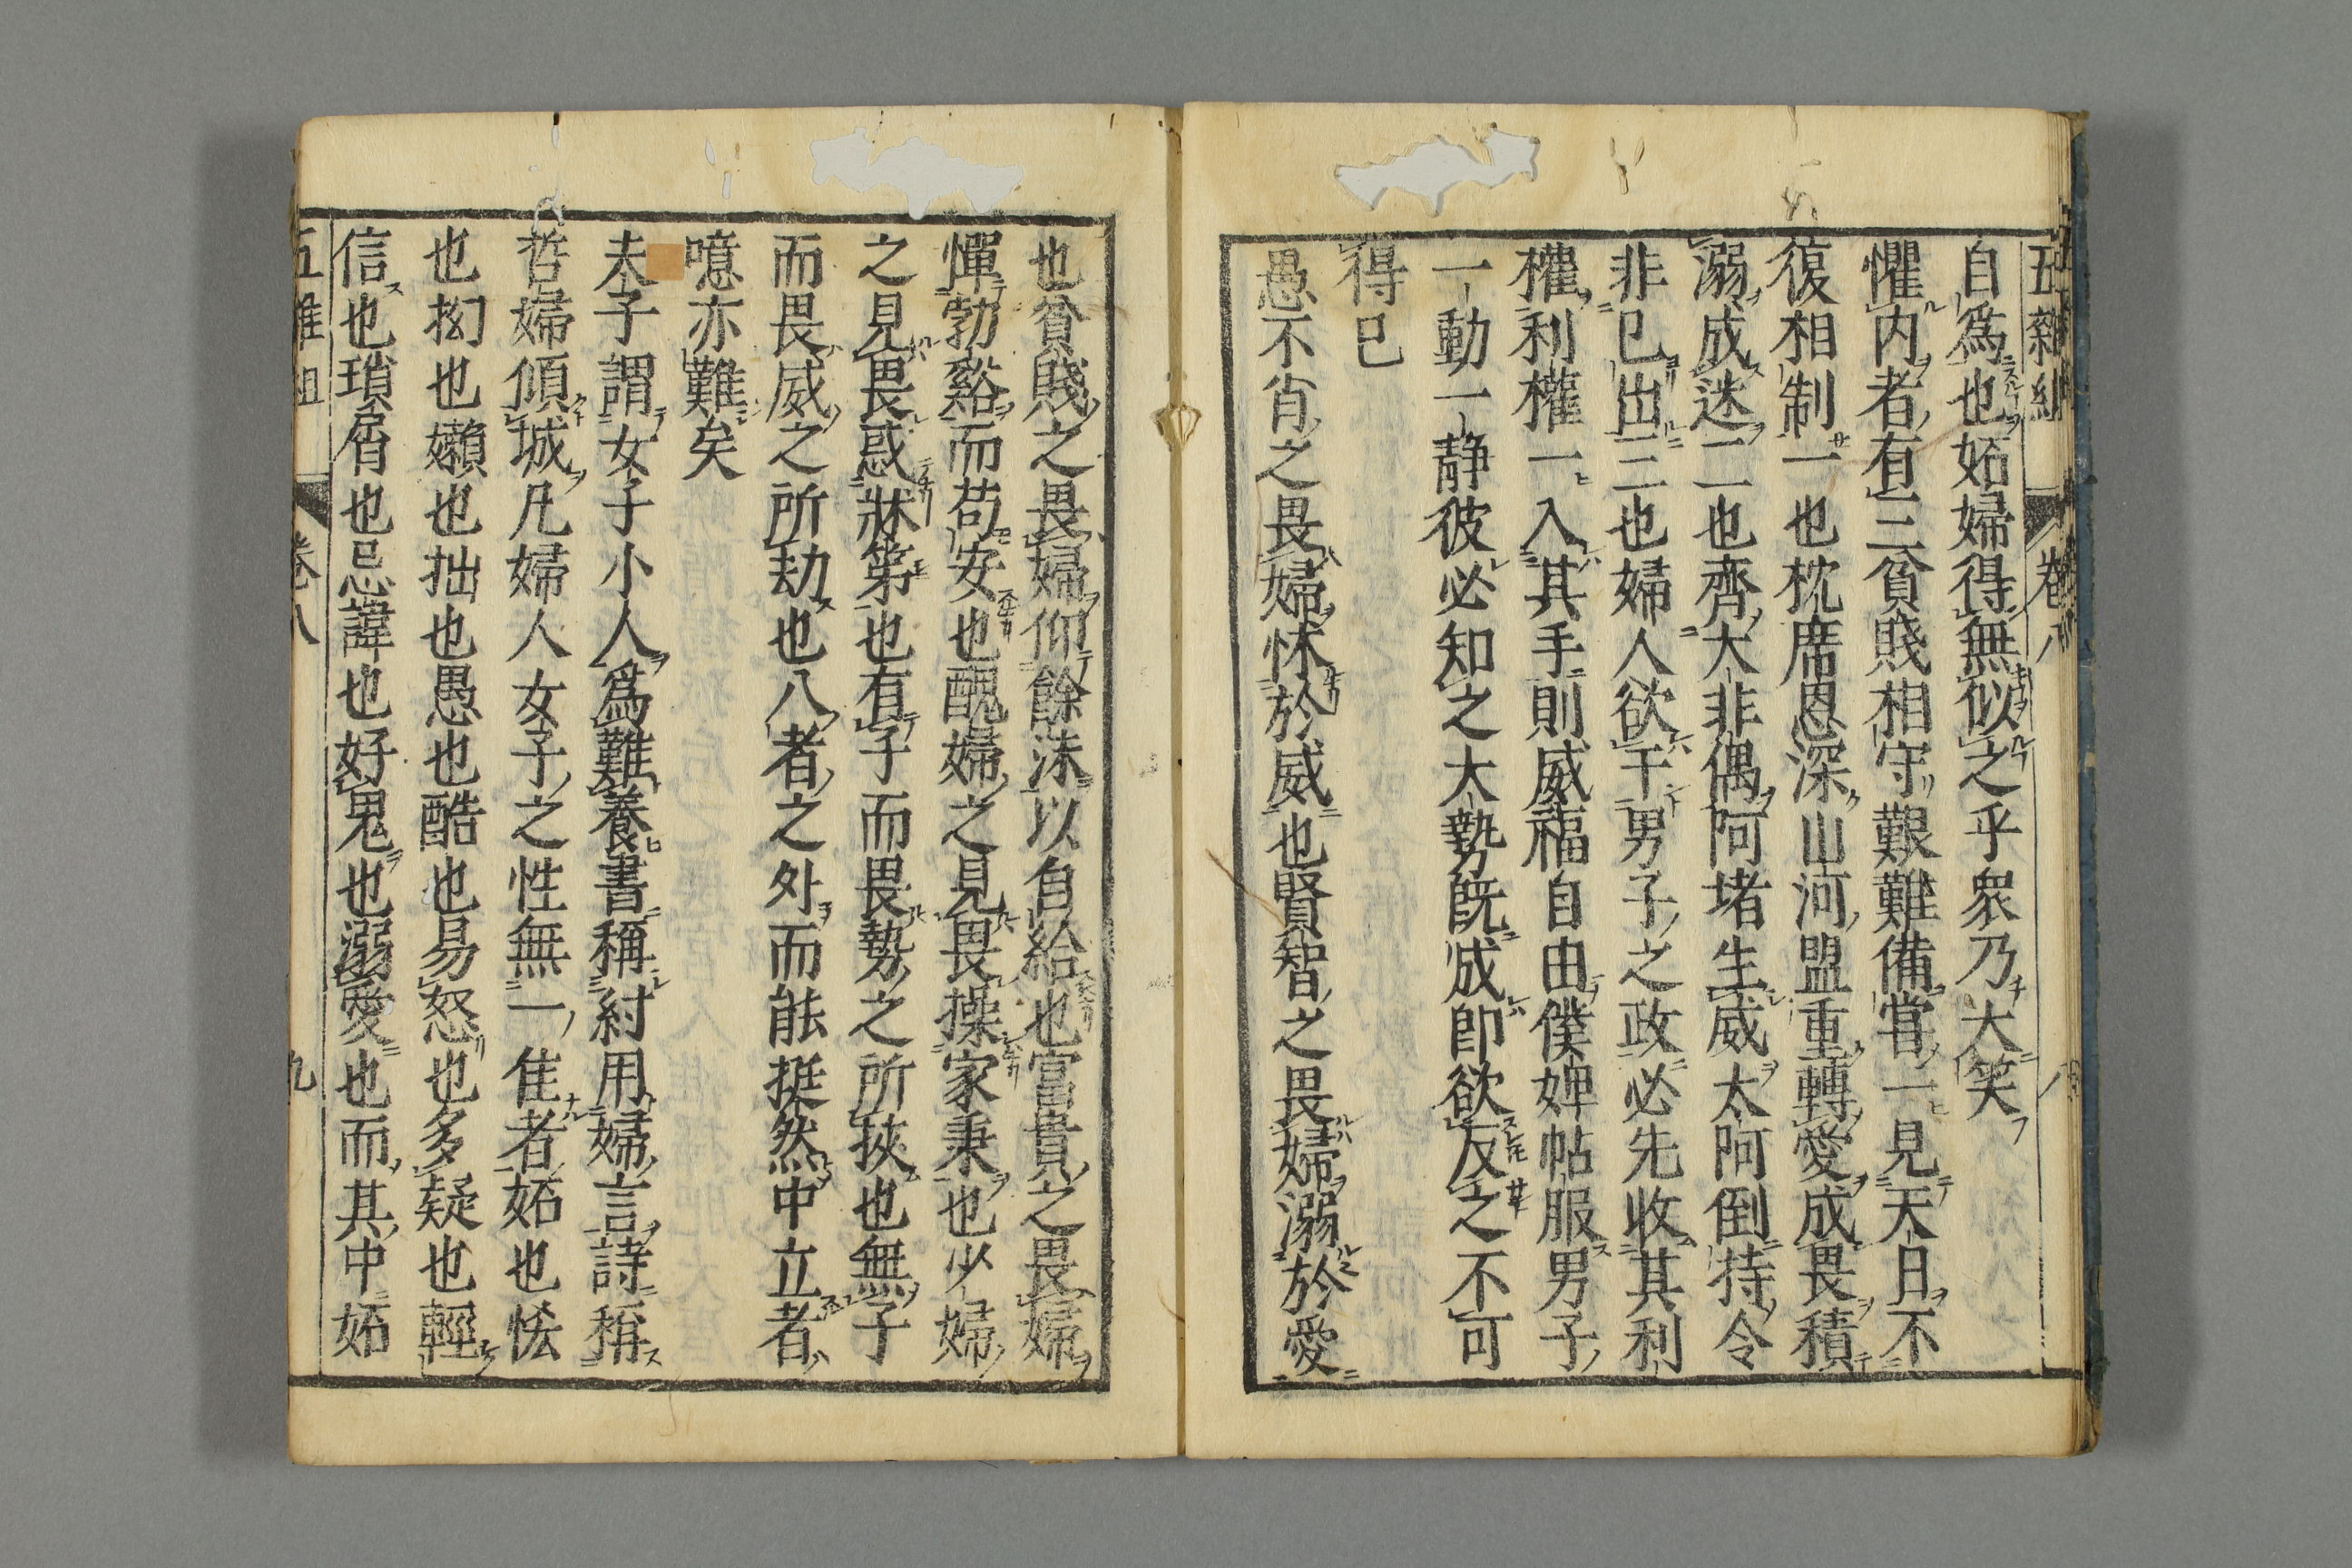 五雜組 卷八
自爲也妬婦得無似之乎衆乃大笑
懼内者有三貧賤相守艱難備嘗一見天日不
復相制一也枕席恩深山河盟重轉愛成畏積
溺成迷二也齊大非偶阿堵生威太阿倒持令
非已出三也婦人欲干男子之政必先收其利
權利權一入其手則威福自由僕婢帖服男子
一動一静彼必知之大勢既成即欲反之不可
得已
愚不肖之畏婦怵於威也賢智之畏婦溺於愛
也貧賤之畏婦仰餘沫以自給也富貴之畏婦
憚勃谿而苟安也醜婦之見畏操家秉也少婦
之見畏惑牀笫也有子而畏勢之所挾也無子
而畏威之所劫也八者之外而能挺然中立者
噫亦難矣
夫子謂女子小人爲難養書稱紂用婦言詩稱
哲婦傾城凡婦人女子之性無一隹者妬也恡
也拗也嬾也拙也愚也酷也易怒也多疑也輕
信也瑣屑也忌諱也好鬼也溺愛也而其中妬
五雜組 卷八 九